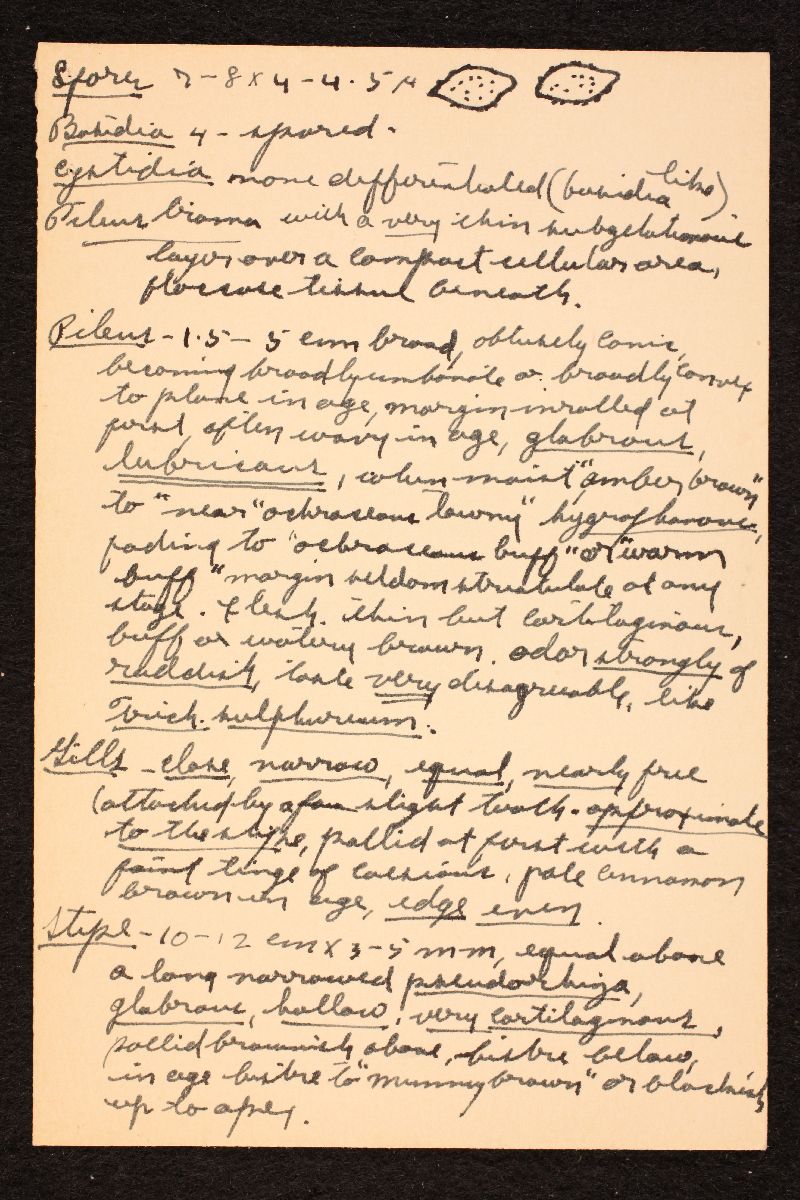 Spores 7-8 x 4-4.5 µ
Basidia 4-spored.
Cystidia none differentiated (basidia like)
Pileus trama with a very thin subgelatinous
layer over a compact cellular area,
floccose tissue beneath.
Pileus - 1.5 - 5 cm broad, obtusely conic,
becoming broadly umbonate or broadly convex
to plane in age, margin inrolled at
first, often wavy in age, glabrous,
lubricous, when moist "amber brown"
to "near "ochraceous tawny" hygrophanous,
fading to "ochraceous buff" or "warm
buff" margin seldom striatulate at any
stage. Flesh thin but cartilaginous,
buff or watery brown. odor strongly of
raddish, taste very disagreeable, like
Trich. sulphureum.
Gills - close, narrow, equal, nearly free
(attached by a slight tooth - approximate
to the stipe, pallid at first with a
faint tinge of caesious, pale cinnamon
brown in age, edge even.
Stipe - 10-12 cm x 3-5 mm, equal above
a long narrowed pseudorhiza,
glabrous, hollow, very cartilaginous,
pallid brownish above, bistre below,
in age bistre to "mummy brown" or blackish
up to apex.